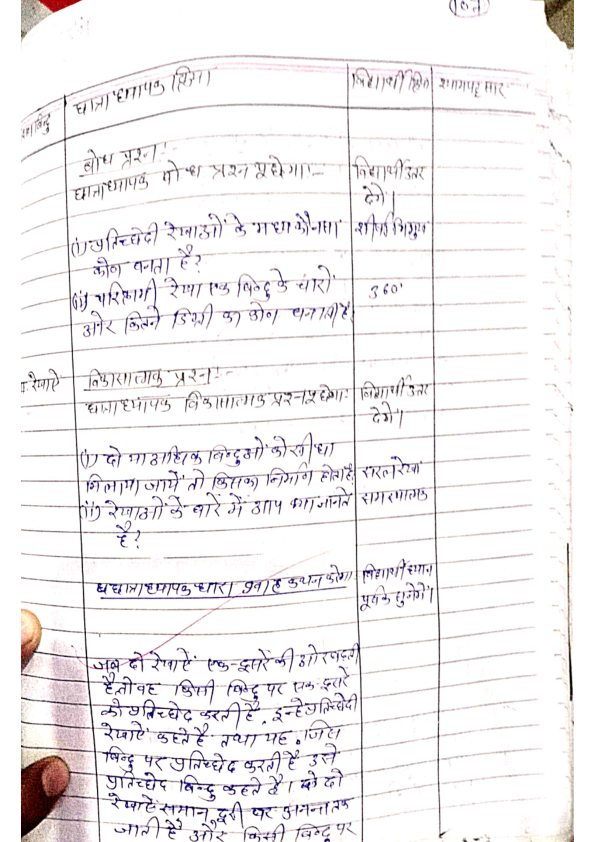 107
छात्राध्यापक क्रिया
विद्यार्थी क्रिया
श्यामपट्ट सार
बोध प्रश्न:-
छात्राध्यापक बोध प्रश्न पूछेगा:-
विद्यार्थी उत्तर
देगें।
(i) प्रतिच्छेदी रेखाओं के मध्य कौनसा
कोण बनता है?
(ii) परिक्रामी रेखा एक बिन्दु के चारों
ओर कितने डिग्री का कोण बनाती है
360°
रेखाऐं
विकासात्मक प्रश्न:-
छात्राध्यापक विकासात्मक प्रश्न पूछेगा:
विद्यार्थी उत्तर
देगें।
(i) दो या अधिक बिन्दुओं को सीधा
मिलाया जायें तो किसका निर्माण होता है
सरल रेखा
(ii) रेखाओं के बारें में आप क्या जानते
है?
समस्यात्मक
छात्राध्यापक द्वारा कथन करेगा
विद्यार्थी ध्यान
पूर्वक सुनेगें।
जब दो रेखाऐं एक-दूसरे की ओर बढ़ती
है तो वह किसी बिन्दु पर एक-दूसरे
को प्रतिच्छेद करती है, इन्हे प्रतिच्छेदी
रेखाऐं कहते है तथा यह जिस
बिन्दु पर प्रतिच्छेद करती है उसे
प्रतिच्छेद बिन्दु कहते है। दो
रेखाऐं समान दूरी पर अनन्त तक
जाती है और किसी बिन्दु पर